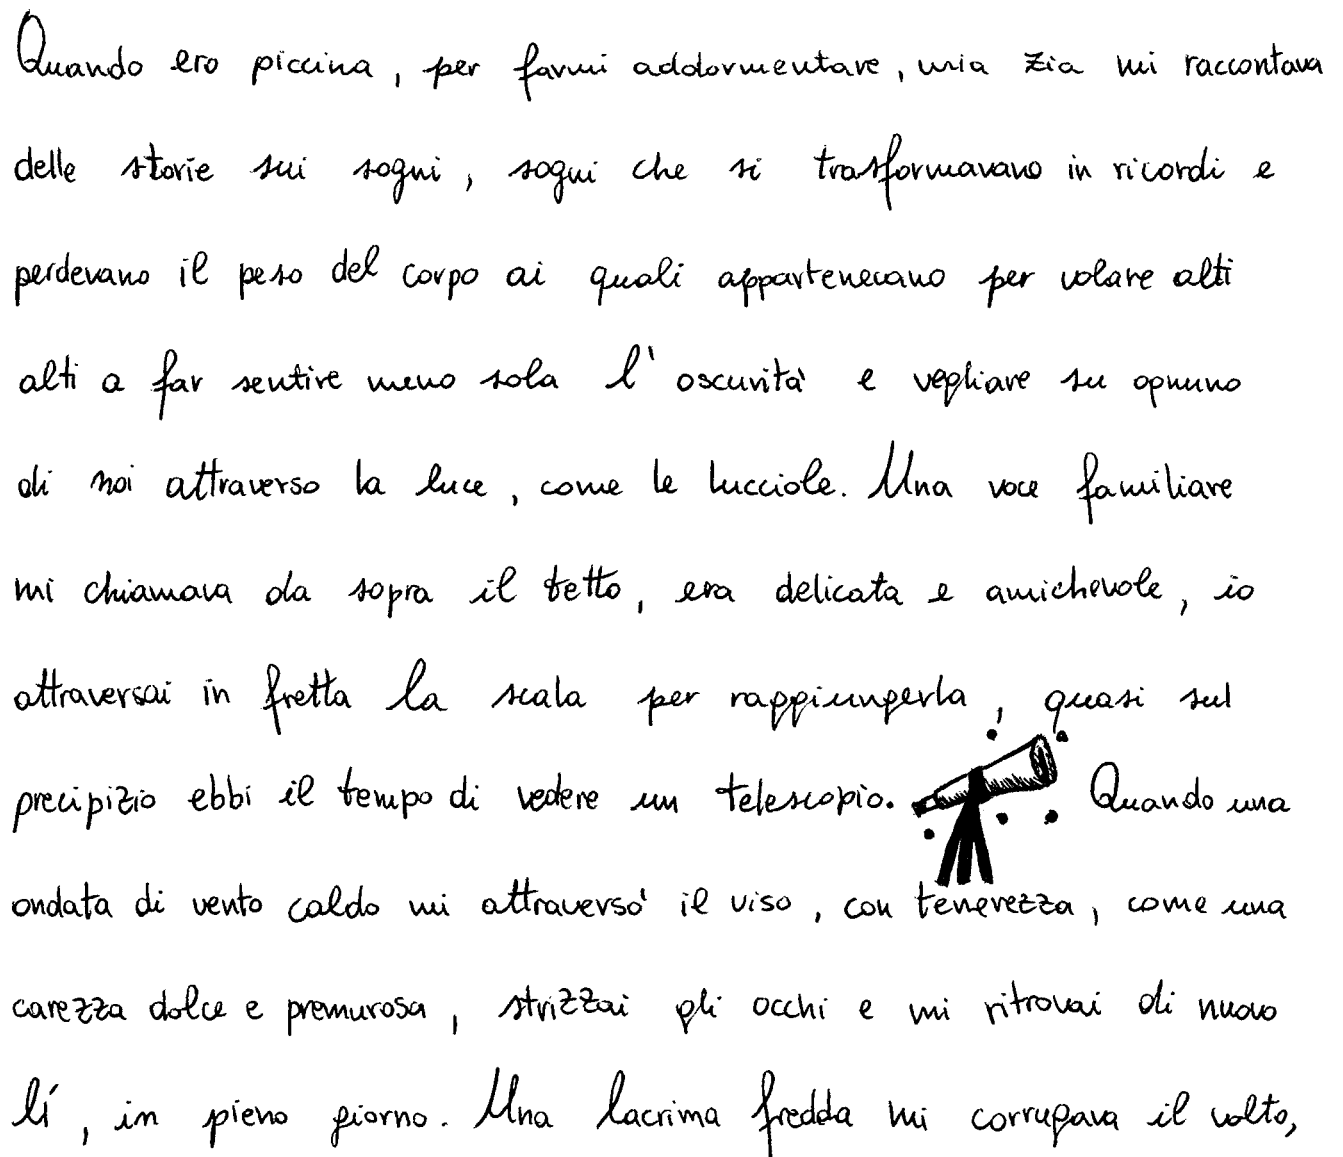 Quando ero piccina, per farmi addormentare, mia zia mi raccontava
delle storie sui sogni, sogni che si trasformavano in ricordi e
perdevano il peso del corpo ai quali appartenevano per volare alti
alti a far sentire meno sola l'oscurità e vegliare su ognuno
di noi attraverso la luce, come le lucciole. Una voce familiare
mi chiamava da sopra il tetto, era delicata e amichevole, io
attraversai in fretta la scala per raggiungerla, quasi sul
precipizio ebbi il tempo di vedere un telescopio. Quando una
ondata di vento caldo mi attraversò il viso, con tenerezza, come una
carezza dolce e premurosa, strizzai gli occhi e mi ritrovai di nuovo
lí, in pieno giorno. Una lacrima fredda mi corrugava il volto,